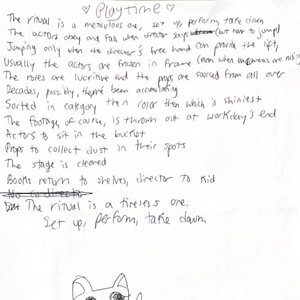 ♡ Playtime ♡
The ritual is a meticulous one, set up, perform, take down
The actors obey and fall when director says (but how to jump)
Jumping only when the director's free hand can provide the lift,
Usually the actors are frozen in frame (even when cameras are rolling)
The roles are lucrative and the props are sourced from all over
Decades, possibly, they've been accumulating
Sorted in category then color then which is shiniest
The footage, of course, is thrown out at workday's end
Actors to sit in the bucket
Props to collect dust in their spots
The stage is cleared
Books return to shelves, director to kid
No co-directo
The ritual is a tireless one.
Set up, perform, take down